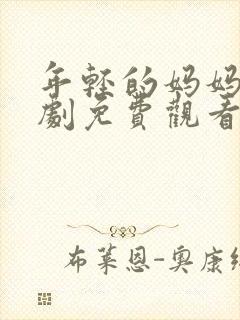 年轻的妈妈
劇免費觀看
布莱恩-奥康纟